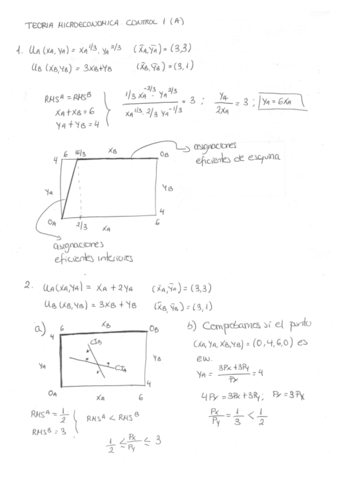 TEORIA MICROECONOMICA CONTROL 1 (A)
1. UA (XA, YA) = XA^1/3 · YA^2/3 (X̄A, ȲA) = (3,3)
UB (XB, YB) = 3XB + YB (X̄B, ȲB) = (3,1)
RMS^A = RMS^B
XA + XB = 6
YA + YB = 4
1/3 XA^-2/3 · YA^2/3 / XA^1/3 · 2/3 YA^-1/3 = 3 ; YA/2XA = 3 ; YA = 6XA
asignaciones
eficientes de esquina
4 6 16/3 XB OB
YA YB
4
OA 2/3 XA 6
asignaciones
eficientes interiores
2. UA (XA, YA) = XA + 2YA (X̄A, ȲA) = (3,3)
UB (XB, YB) = 3XB + YB (X̄B, ȲB) = (3,1)
a)
4 6 XB OB
CIB
YA CIA YB
4
OA XA 6
RMS^A = 1/2
RMS^B = 3
RMS^A < RMS^B
1/2 ≤ Px/Py ≤ 3
b) Comprobamos si el punto
(XA, YA, XB, YB) = (0,4,6,0) es
ew.
YA = 3Px + 3Py / Py = 4
4Py = 3Px + 3Py ; Py = 3Px
Px/Py = 1/3 < 1/2